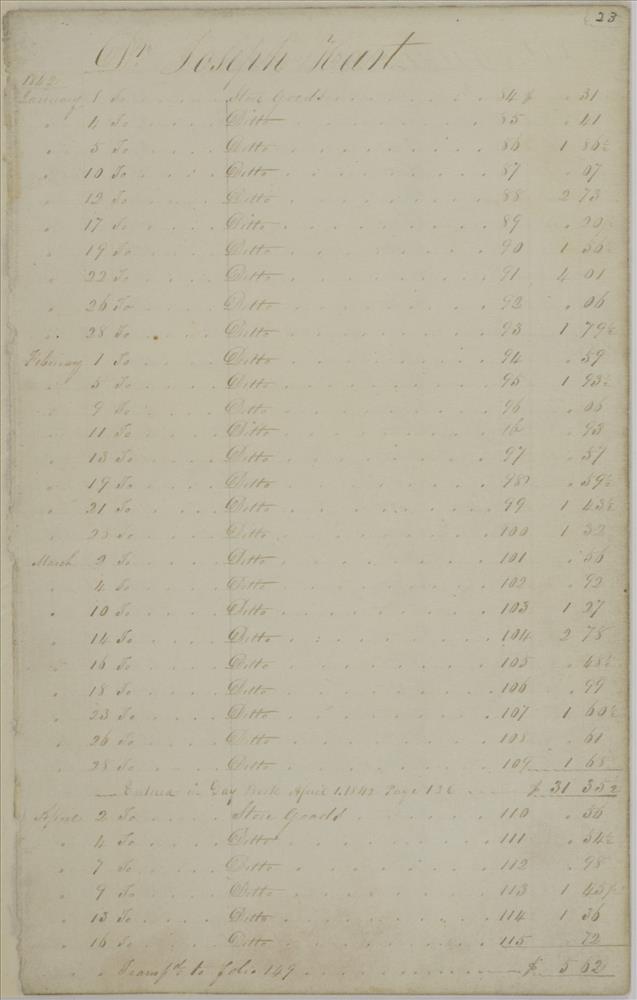 23
Dr Joseph Hart
1842
January 1 To Store Goods 84 $ . 31
" 4 To Ditto 85 . 41
" 5 To Ditto 86 1 86½
" 10 To Ditto 87 . 07
" 12 To Ditto 88 2 73
" 17 To Ditto 89 . 20
" 19 To Ditto 90 1 56
" 22 To Ditto 91 4 01
" 26 To Ditto 92 . 06
" 28 To Ditto 93 1 79½
February 1 To Ditto 94 . 59
" 5 To Ditto 95 1 93½
" 9 To Ditto 96 . 06
" 11 To Ditto 16 . 93
" 13 To Ditto 97 . 57
" 19 To Ditto 98 . 59½
" 21 To Ditto 99 1 43½
" 25 To Ditto 100 1 32
March 2 To Ditto 101 . 56
" 4 To Ditto 102 . 92
" 10 To Ditto 103 1 27
" 14 To Ditto 104 2 78
" 16 To Ditto 105 . 48½
" 18 To Ditto 106 . 99
" 23 To Ditto 107 1 60½
" 26 To Ditto 108 . 61
" 28 To Ditto 109 1 68
Entered in Day Book April 1, 1842 Page 136 $ 31 35½
April 2 To Store Goods 110 . 56
" 4 To Ditto 111 . 54½
" 7 To Ditto 112 . 98
" 9 To Ditto 113 1 45½
" 13 To Ditto 114 1 36
" 16 To Ditto 115 . 72
" Transfd to folio 149 $ 5 62